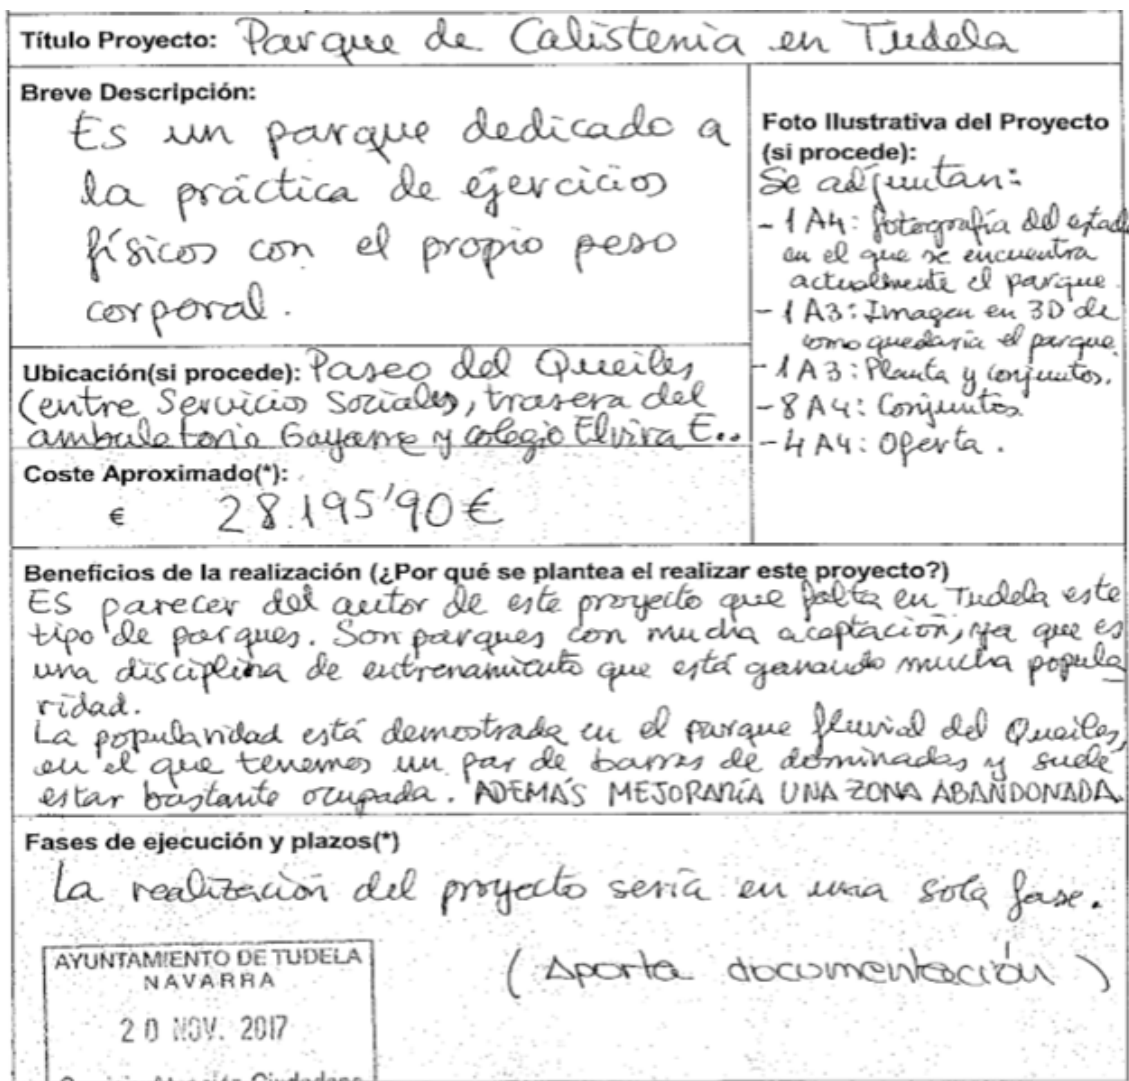 Título Proyecto: Parque de Calistenia en Tudela
Breve Descripción:
Es un parque dedicado a
la práctica de ejercicios
físicos con el propio peso
corporal.
Foto Ilustrativa del Proyecto
(si procede):
Se adjuntan:
- 1 A4: fotografía del estado
en el que se encuentra
actualmente el parque.
- 1 A3: Imagen en 3D de
como quedaría el parque.
- 1 A3: Planta y conjuntos.
- 8 A4: Conjuntos
- 4 A4: Oferta.
Ubicación(si procede): Paseo del Queiles
(entre Servicios Sociales, trasera del
ambulatorio Gayarre y colegio Elvira E..
Coste Aproximado(*):
€ 28.195'90€
Beneficios de la realización (¿Por qué se plantea el realizar este proyecto?)
ES parecer del autor de este proyecto que falta en Tudela este
tipo de parques. Son parques con mucha aceptación, ya que es
una disciplina de entrenamiento que está ganando mucha popula
ridad.
La popularidad está demostrada en el parque fluvial del Queiles,
en el que tenemos un par de barras de dominadas y suele
estar bastante ocupada. ADEMÁS MEJORARÍA UNA ZONA ABANDONADA.
Fases de ejecución y plazos(*)
La realización del proyecto sería en una sola fase.
(Aporta documentación)
AYUNTAMIENTO DE TUDELA
NAVARRA
20 NOV. 2017